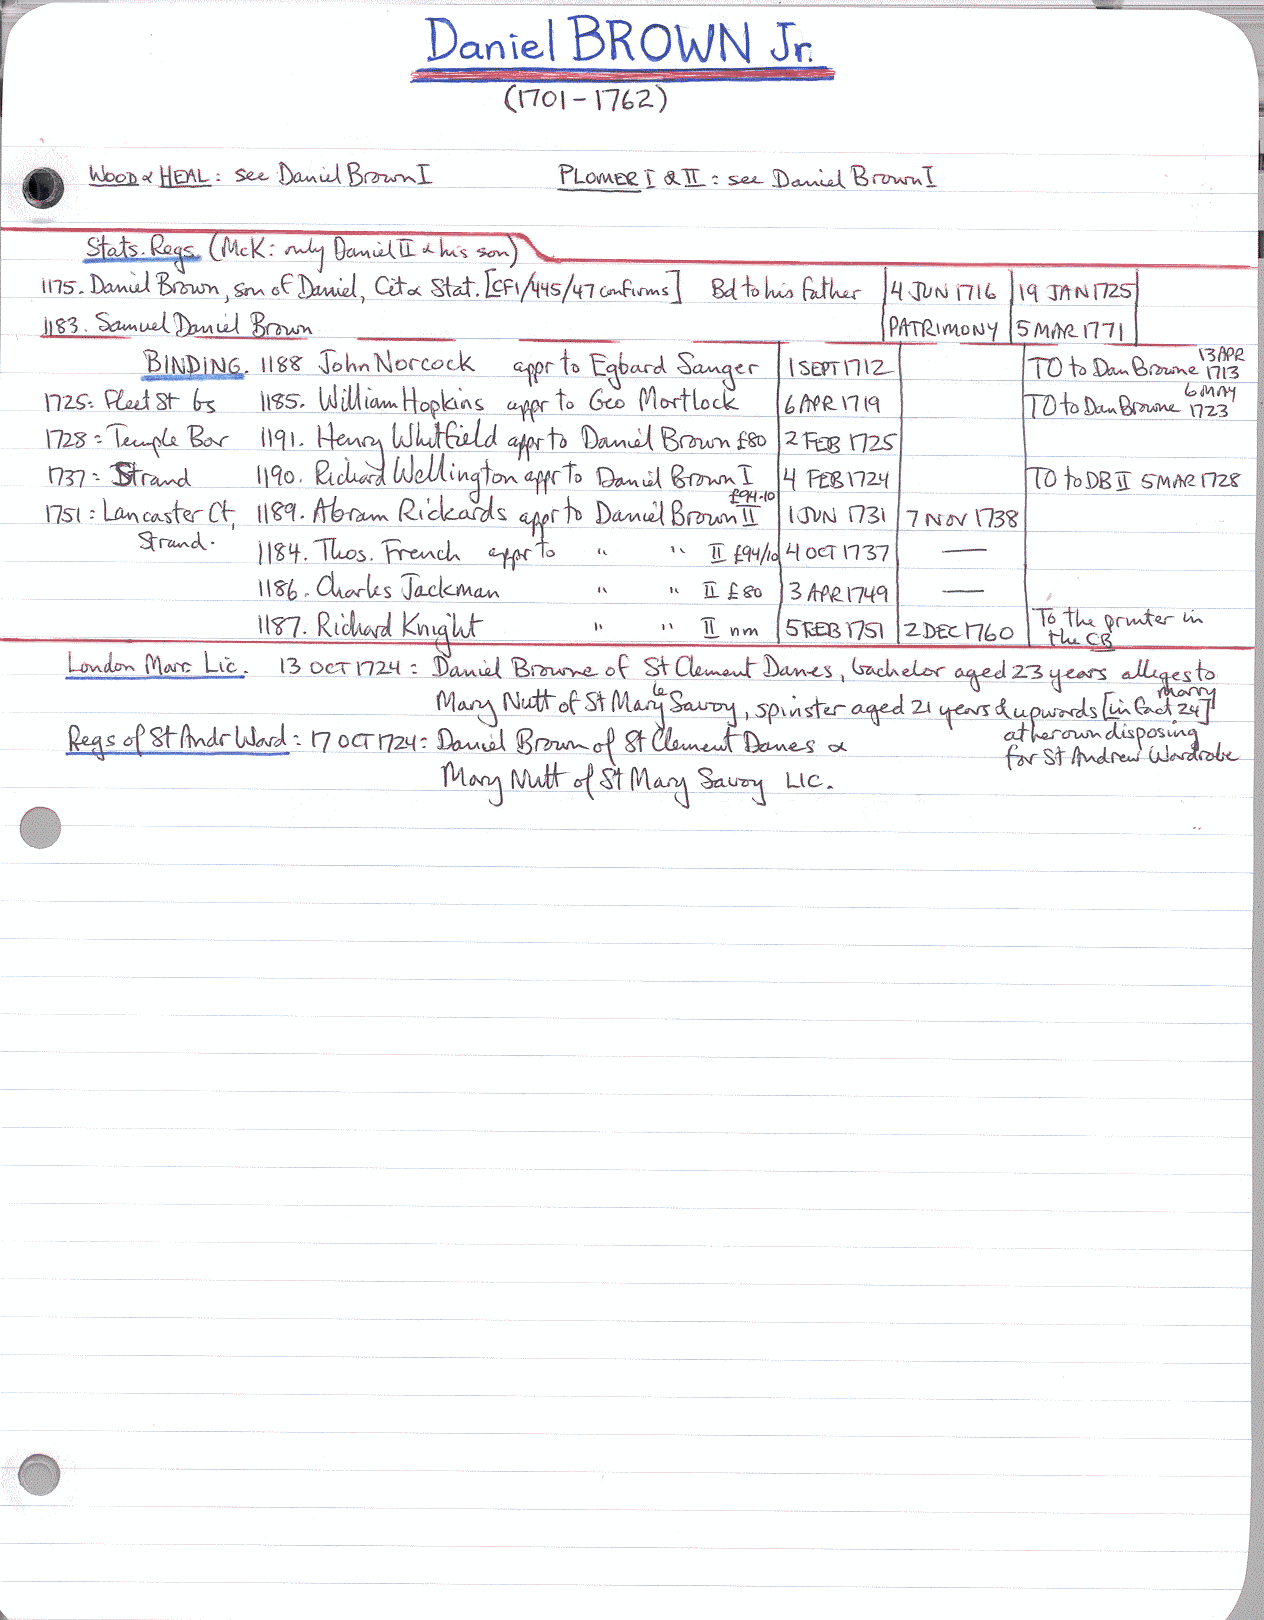 Daniel BROWN Jr.
(1701-1762)
WOOD & HEAL: see Daniel Brown I PLOMER I & II: see Daniel Brown I
Stats. Regs. (McK: only Daniel II & his son)
1175. Daniel Brown, son of Daniel, Cit & Stat. [CF1/445/47 confirms] Bd to his father 4 JUN 1716 19 JAN 1725
1183. Samuel Daniel Brown PATRIMONY 5 MAR 1771
BINDING. 1188 John Norcock appr to Egbard Sanger 1 SEPT 1712 TO to Dan Browne 13 APR 1713
1725: Fleet St bs 1185. William Hopkins appr to Geo Mortlock 6 APR 1719 TO to Dan Browne 6 MAY 1723
1728: Temple Bar 1191. Henry Whitfield appr to Daniel Brown £80 2 FEB 1725
1737: Strand 1190. Richard Wellington appr to Daniel Brown I 4 FEB 1724 TO to DB II 5 MAR 1728
1751: Lancaster Ct, 1189. Abram Rickards appr to Daniel Brown II £94-10 1 JUN 1731 7 NOV 1738
Strand. 1184. Thos. French appr to " " II £94/10 4 OCT 1737 —
1186. Charles Jackman " " II £80 3 APR 1749 —
1187. Richard Knight " " II nm 5 FEB 1751 2 DEC 1760 To the printer in
the CB
London Marr. Lic. 13 OCT 1724: Daniel Browne of St Clement Danes, bachelor aged 23 years alleges to
marry
Mary Nutt of St Mary le Savoy, spinster aged 21 years & upwards [in fact 24]
at her own disposing
Regs of St Andr Ward: 17 OCT 1724: Daniel Brown of St Clement Danes &
for St Andrew Wardrobe
Mary Nutt of St Mary Savoy LIC.